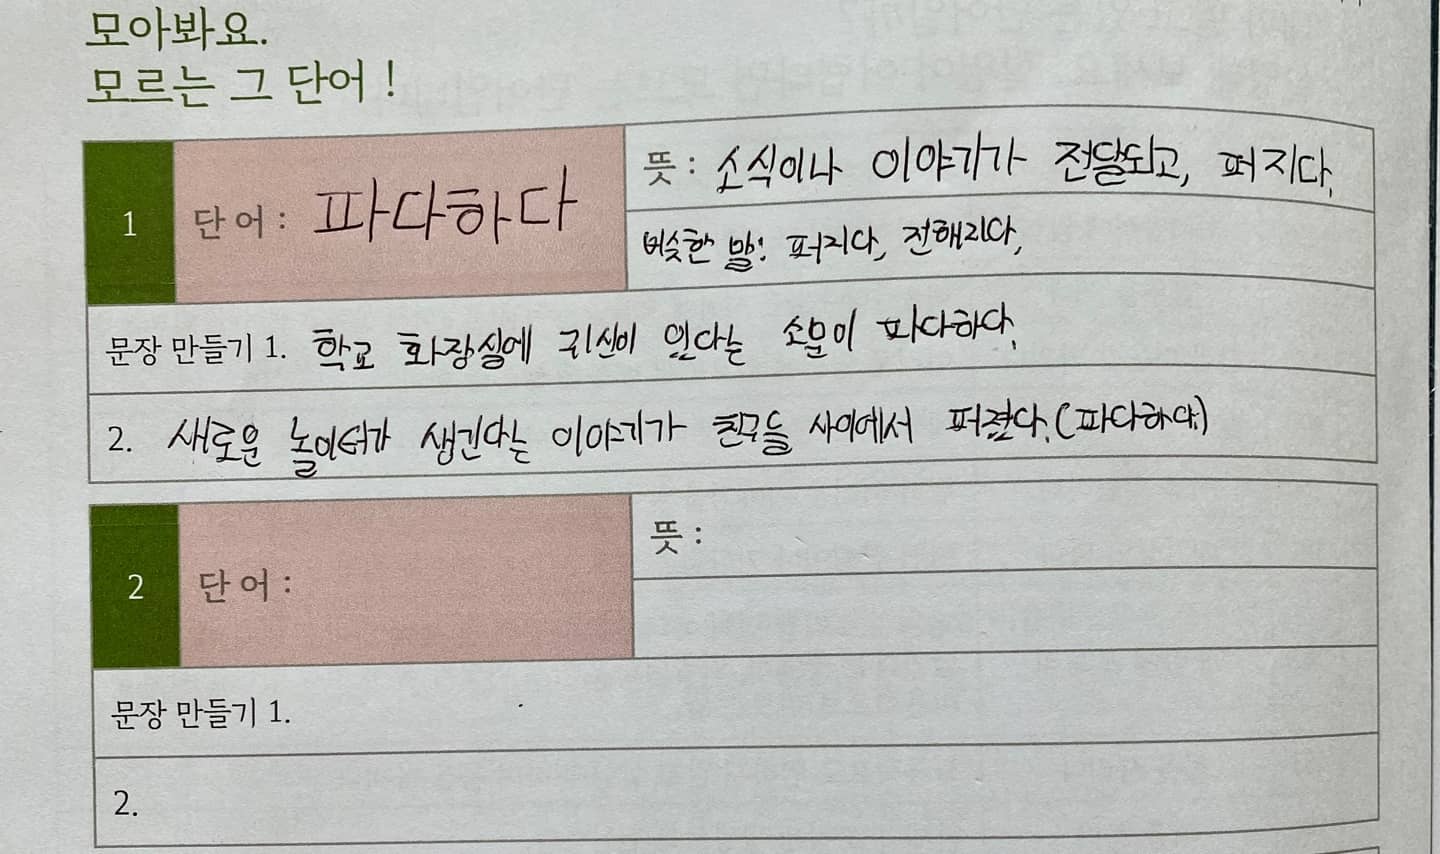 모아봐요.
모르는 그 단어 !
1
단 어 : 파다하다
뜻 : 소식이나 이야기가 전달되고, 퍼지다.
비슷한 말: 퍼지다, 전해지다,
문장 만들기 1. 학교 화장실에 귀신이 있다는 소문이 파다하다.
2. 새로운 놀이터가 생긴다는 이야기가 친구들 사이에서 퍼졌다.(파다하다.)
2
단 어 :
뜻 :
문장 만들기 1.
2.